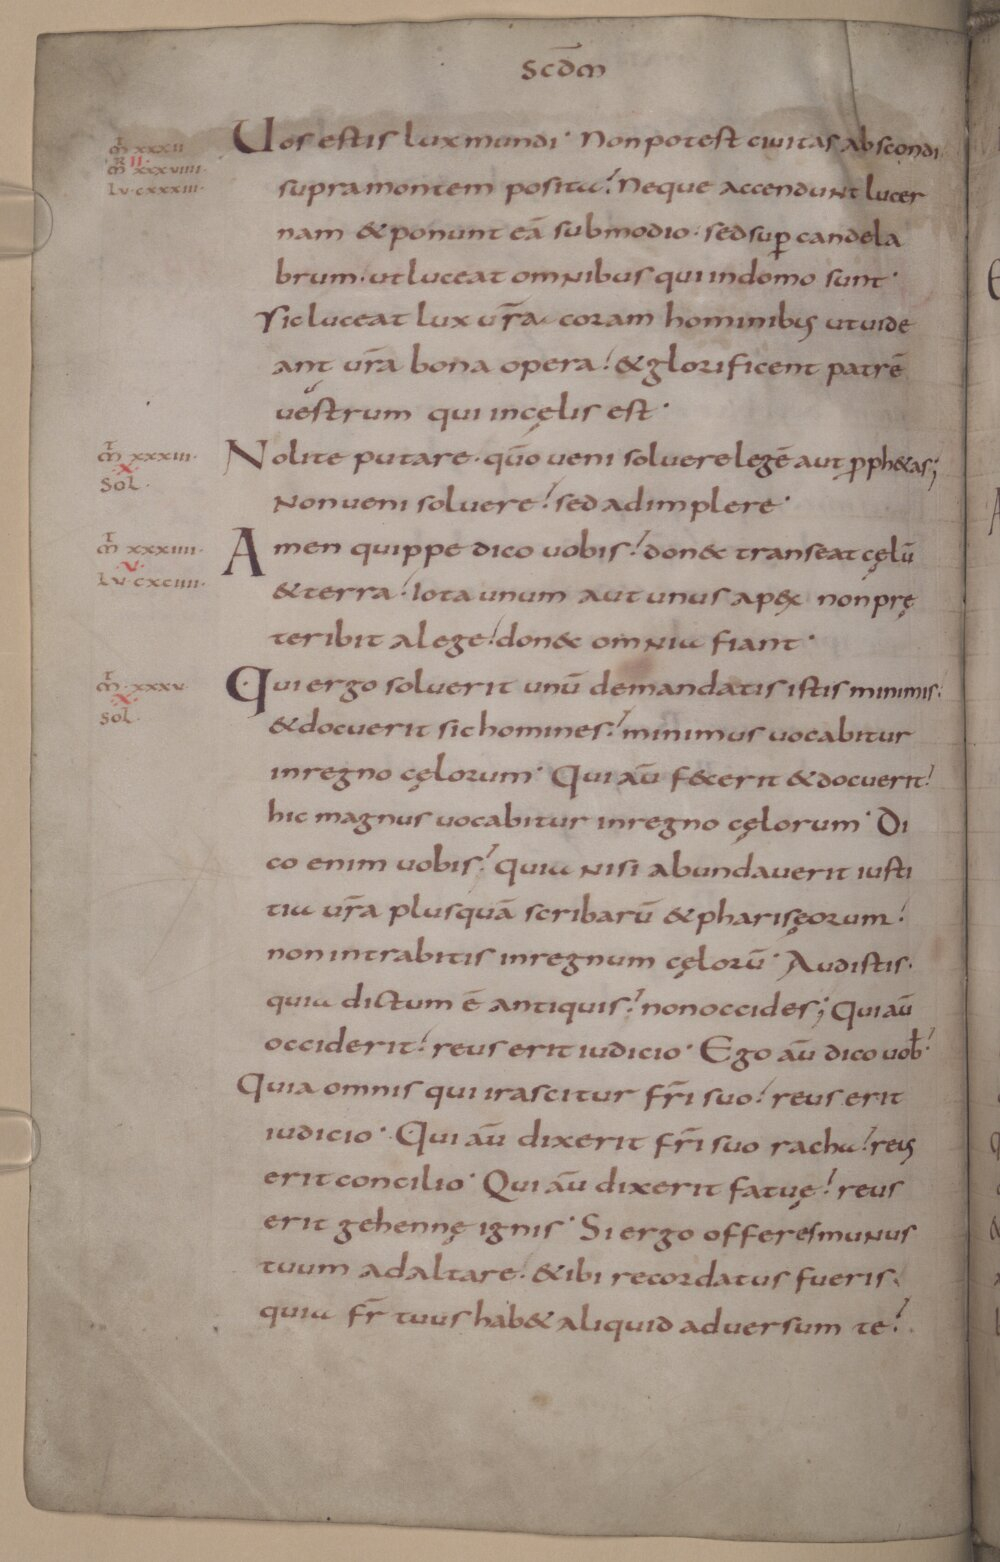 SCDM̄
Mt XXXII
II
MR XXXVIIII
LU CXXXIII
Uos estis lux mundi. Non potest ciuitas abscondi
supra montem posita. Neque accendunt lucer
nam & ponunt eā sub modio. sed sup̄ candela
brum. ut luceat omnibus qui in domo sunt.
Sic luceat lux ur̄a coram hominibus ut uide
ant ur̄a bona opera. & glorificent patrē
uestrum qui in cęlis est.
Mt XXXIII.
X
Sol.
Nolite putare. qūo ueni soluere legē aut ꝓph&as;
Non ueni soluere. sed adimplere.
Mt XXXIIII.
V.
LU. CXCIIII.
Amen quippe dico uobis. don&c transeat cęlū
& terra. Iota unum aut unus apex non prę
teribit a lege. don&c omnia fiant.
Mt. XXXV.
X.
Sol.
Qui ergo soluerit unū de mandatis istis minimis.
& docuerit sic homines. minimus uocabitur
in regno cęlorum. Qui aū fecerit & docuerit.
hic magnus uocabitur in regno cęlorum. Di
co enim uobis. quia nisi abundauerit iusti
tia ur̄a plus quā scribarū & pharisęorum.
non intrabitis in regnum cęlorū. Audistis.
quia dictum ē antiquis. non occides; Qui aū
occiderit. reus erit iudicio. Ego aū dico uob̄.
Quia omnis qui irascitur fr̄i suo. reus erit
iudicio. Qui aū dixerit fr̄i suo racha. reus
erit concilio. Qui aū dixerit fatuę. reus
erit gehennę ignis. Si ergo offeres munus
tuum ad altare. & ibi recordatus fueris.
quia fr̄ tuus hab& aliquid aduersum te.